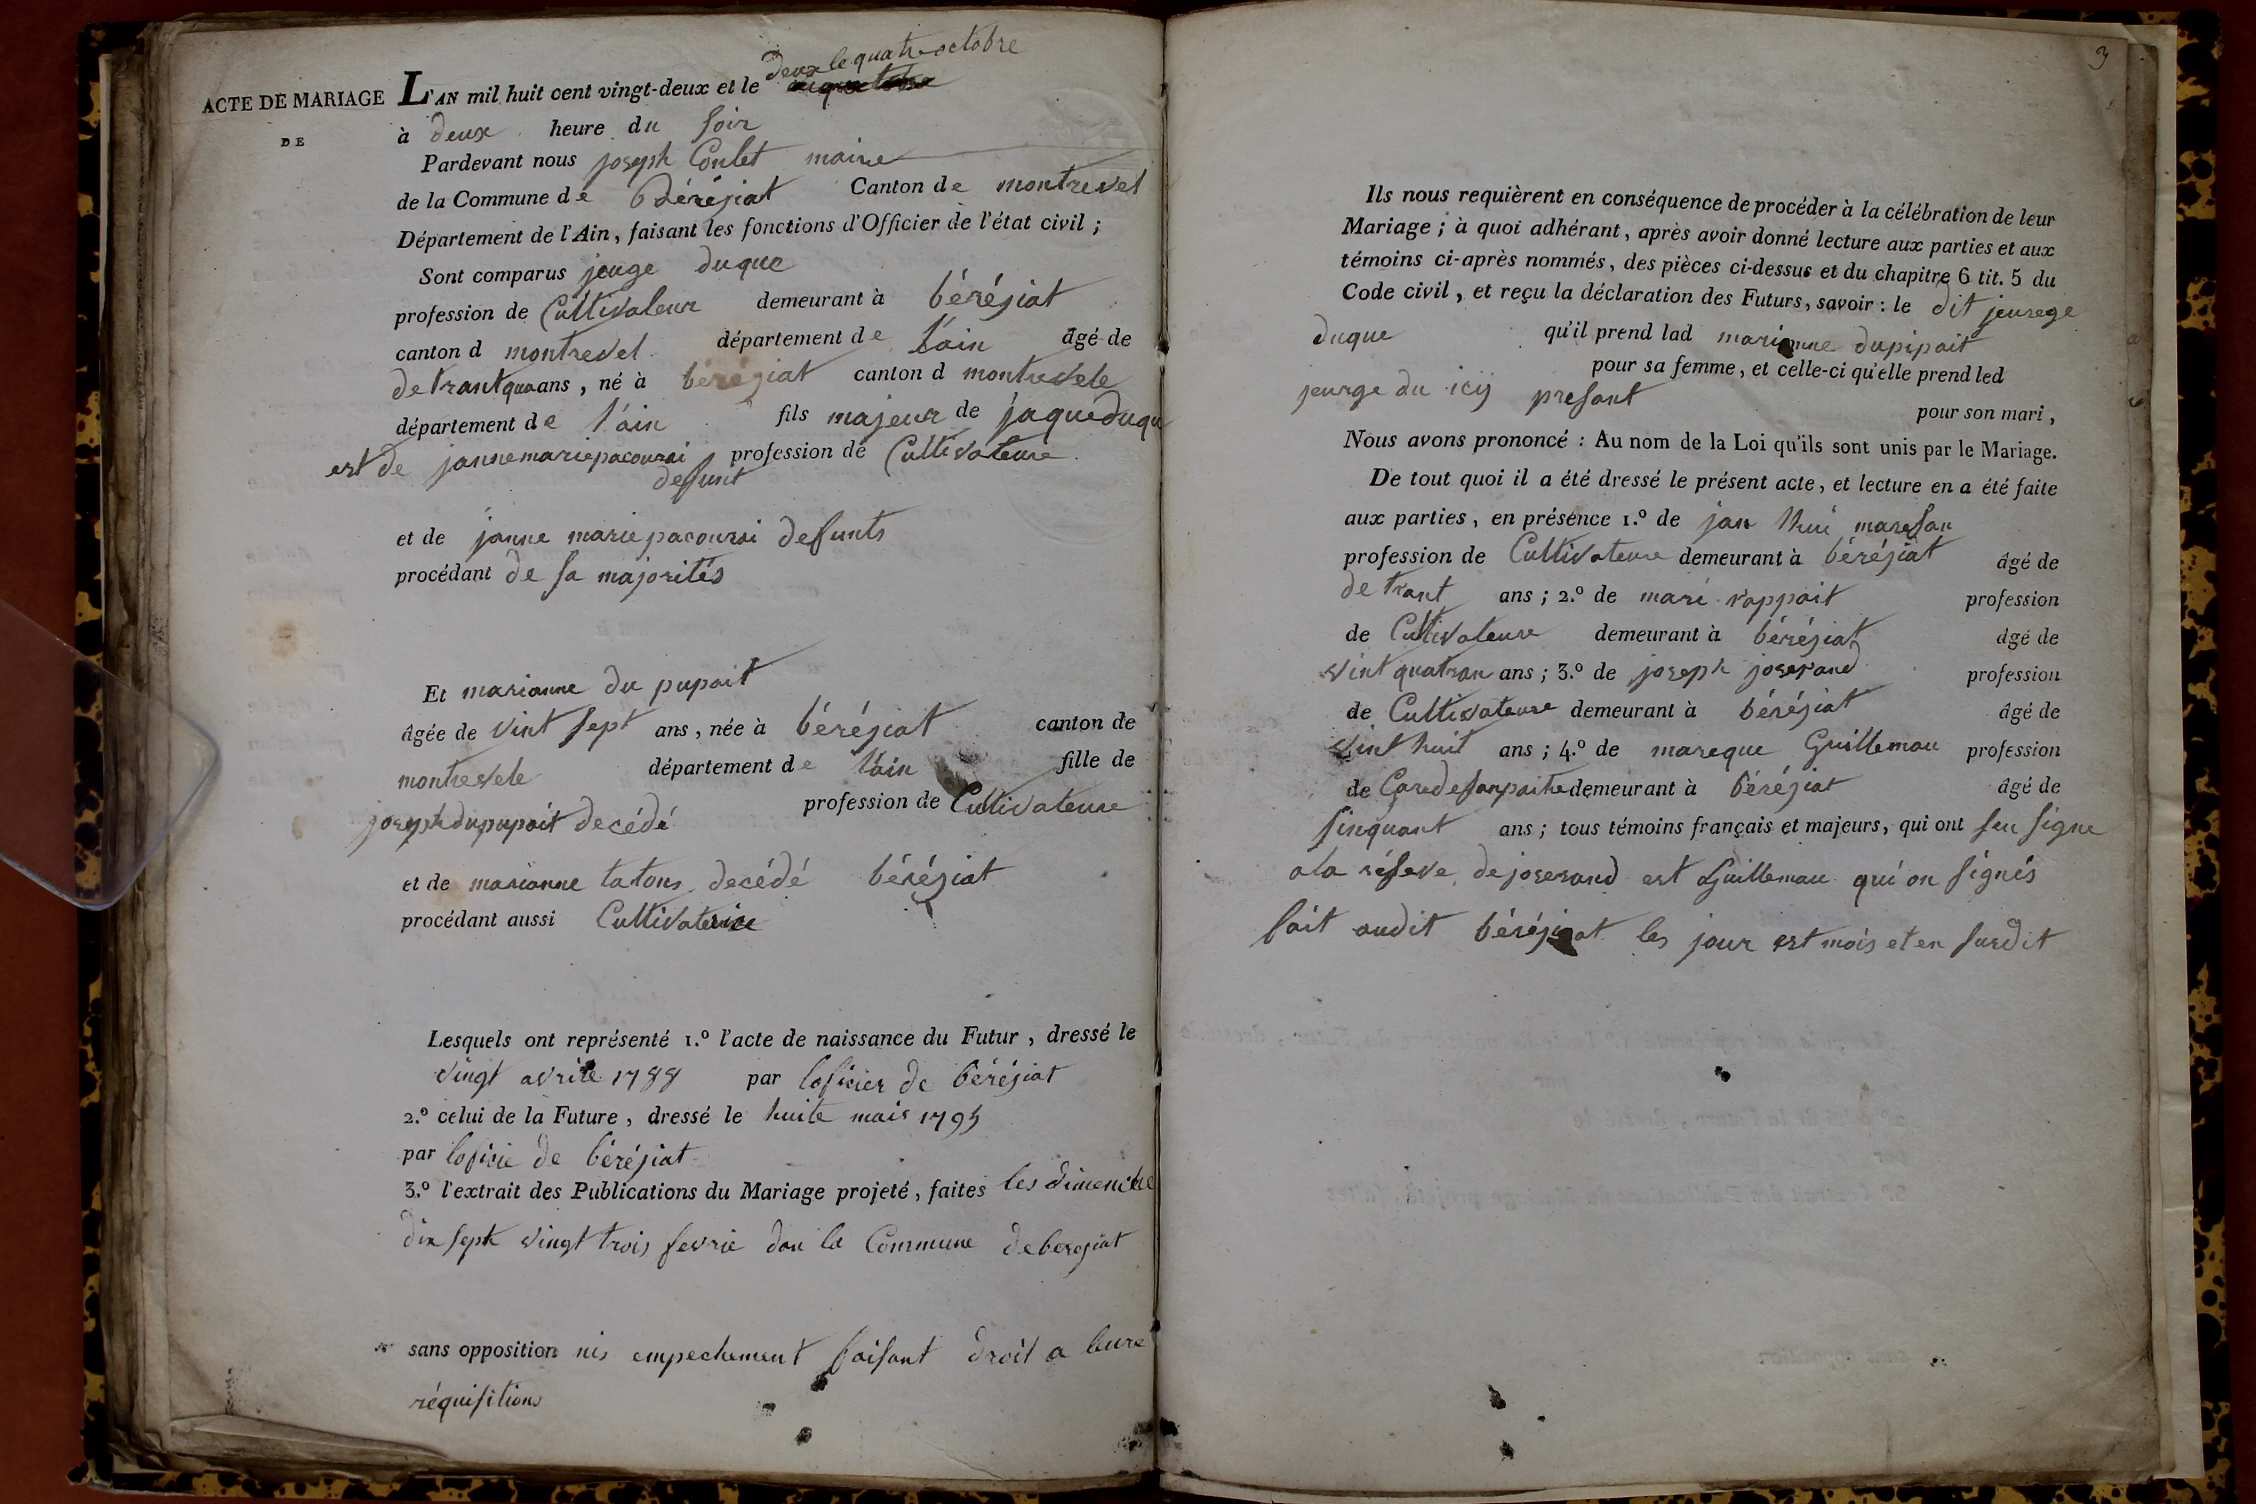 deux le quatre octobre
ACTE DE MARIAGE L'AN mil huit cent vingt-deux et le
DE
à deux heure du soir
Pardevant nous joseph Coulet maire
de la Commune de Bérésiat Canton de montrevel
Département de l'Ain, faisant les fonctions d'Officier de l'état civil ;
Sont comparus jeuge duque
profession de Cultivateur demeurant à bérésiat
canton d montrevel département de l'ain âgé de
de trantquaans, né à bérésiat canton d montrevele
département de l'ain fils majeur de jaque duque
est de jannemariepacourai profession de Cultivateure
defunt
et de janne marie pacourai defunts
procédant de sa majorités
Et marianne du pupait
âgée de vint sept ans, née à bérésiat canton de
montrevele département de l'ain fille de
joseph dupupait decédé profession de Cultivateure
et de marianne tatons decédé bérésiat
procédant aussi Cultivaterice
Lesquels ont représenté 1.º l'acte de naissance du Futur, dressé le
vingt avrile 1788 par loficier de bérésiat
2.º celui de la Future, dressé le huite mais 1795
par loficie de bérésiat
3.º l'extrait des Publications du Mariage projeté, faites les dimenche
dix sept vingt trois fevrie dan la Commune de beresiat
sans opposition nis empechement faisant droit a leure
réquisitions
3
Ils nous requièrent en conséquence de procéder à la célébration de leur
Mariage ; à quoi adhérant, après avoir donné lecture aux parties et aux
témoins ci-après nommés, des pièces ci-dessus et du chapitre 6 tit. 5 du
Code civil, et reçu la déclaration des Futurs, savoir : le dit jeurege
duque qu'il prend lad marianne dupipait
pour sa femme, et celle-ci qu'elle prend led
jeurge du icij presant pour son mari,
Nous avons prononcé : Au nom de la Loi qu'ils sont unis par le Mariage.
De tout quoi il a été dressé le présent acte, et lecture en a été faite
aux parties, en présence 1.º de jan maresan
profession de Cultivateure demeurant à bérésiat âgé de
de trant ans ; 2.º de mari rappait profession
de Cultivateure demeurant à bérésiat âgé de
vint quatran ans ; 3.º de joseph joserand profession
de Cultivateure demeurant à bérésiat âgé de
vint huit ans ; 4.º de mareque Guillemau profession
de demeurant à bérésiat âgé de
sinquant ans ; tous témoins français et majeurs, qui ont seu signe
a la réserve de joserand est Guillemau qui on signés
fait audit bérésiat les jour est mois et en surdit